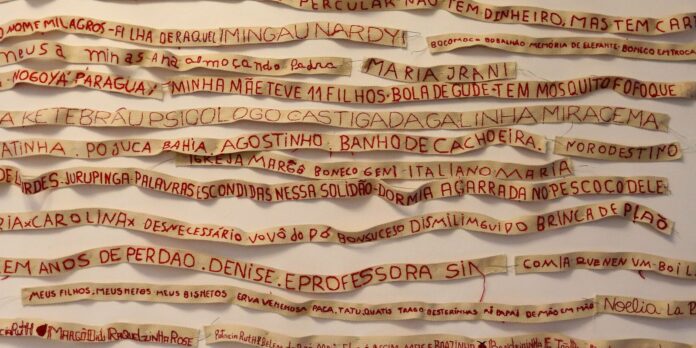 PERCULAR NÃO TEM DINHEIRO, MAS TEM CAR
O NOME MILAGROS-FILHA DE RAQUEL MINGAU NARDY
BOCOMOCA BOBALHÃO MEMÓRIA DE ELEFANTE-BONECO EM TROCA
meus a minas Ana almoçando Padra MARIA IRANI
NOGOYA PARAGUAI MINHA MÃE TEVE 11 FILHOS. BOLA DE GUDE-TEM MOSQUITO FOFOQUE
A KETEBRÁU PSICOLOGO CASTIGADA GALINHA MIRACEMA
ATINHA. POJUCA BAHIA, AGOSTINHO, BANHO DE CACHOEIRA. NORODESTINO
IGREJA MARGÔ BONECO GEMI-ITALIANO MARIA
DE LURDES. JURUPINGA PALAVRAS ESCONDIDAS NESSA SOLIDÃO-DORMIA AGARRADA NO PESCOCO DELE.
RIA x CAROLINA x DESNECESSÁRIO VOVÔ DO PÓ BONSUCESO DISMILIMGUIDO BRINCA DE PLAÔ
EM ANOS DE PERDAO. DENISE. E PROFESSORA SIM COMIA RUBENEN UM-BOI L
MEUS FILHOS, MEUS NETOS. MEUS BISNETOS ERVA VENENOSA PACA, TATU, QUATIS DE MÃO EM MÃO Noelia La R
RUTH MARGÔ RAQUELZINHA ROSE